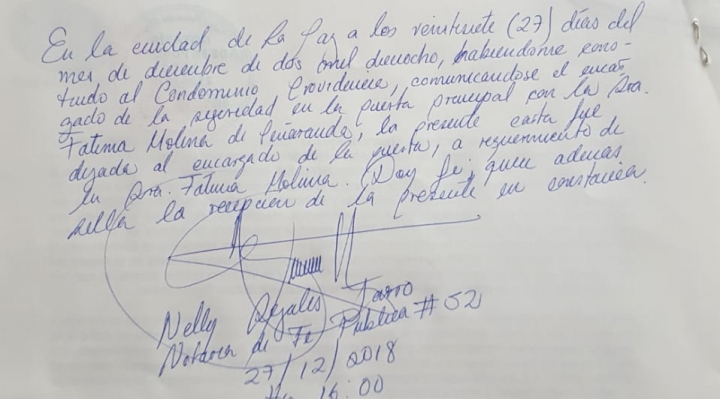 En la ciudad de La Paz a los veintisiete (27) días del
mes de diciembre de dos mil dieciocho, habiendome cons-
tituido al Condominio Providencia, comunicandose el encar-
gado de la seguridad en la puerta principal con la Dra.
Fatima Molina de Peñaranda, la presente carta fue
dejada al encargado de la puerta, a requerimiento de
la Dra. Fatima Molina. (Doy fe, quien ademas
sella la recepcion de la presente en constancia.
Nelly
Notaria de Fe Publica # 52
27/12/2018
Hrs 16:00